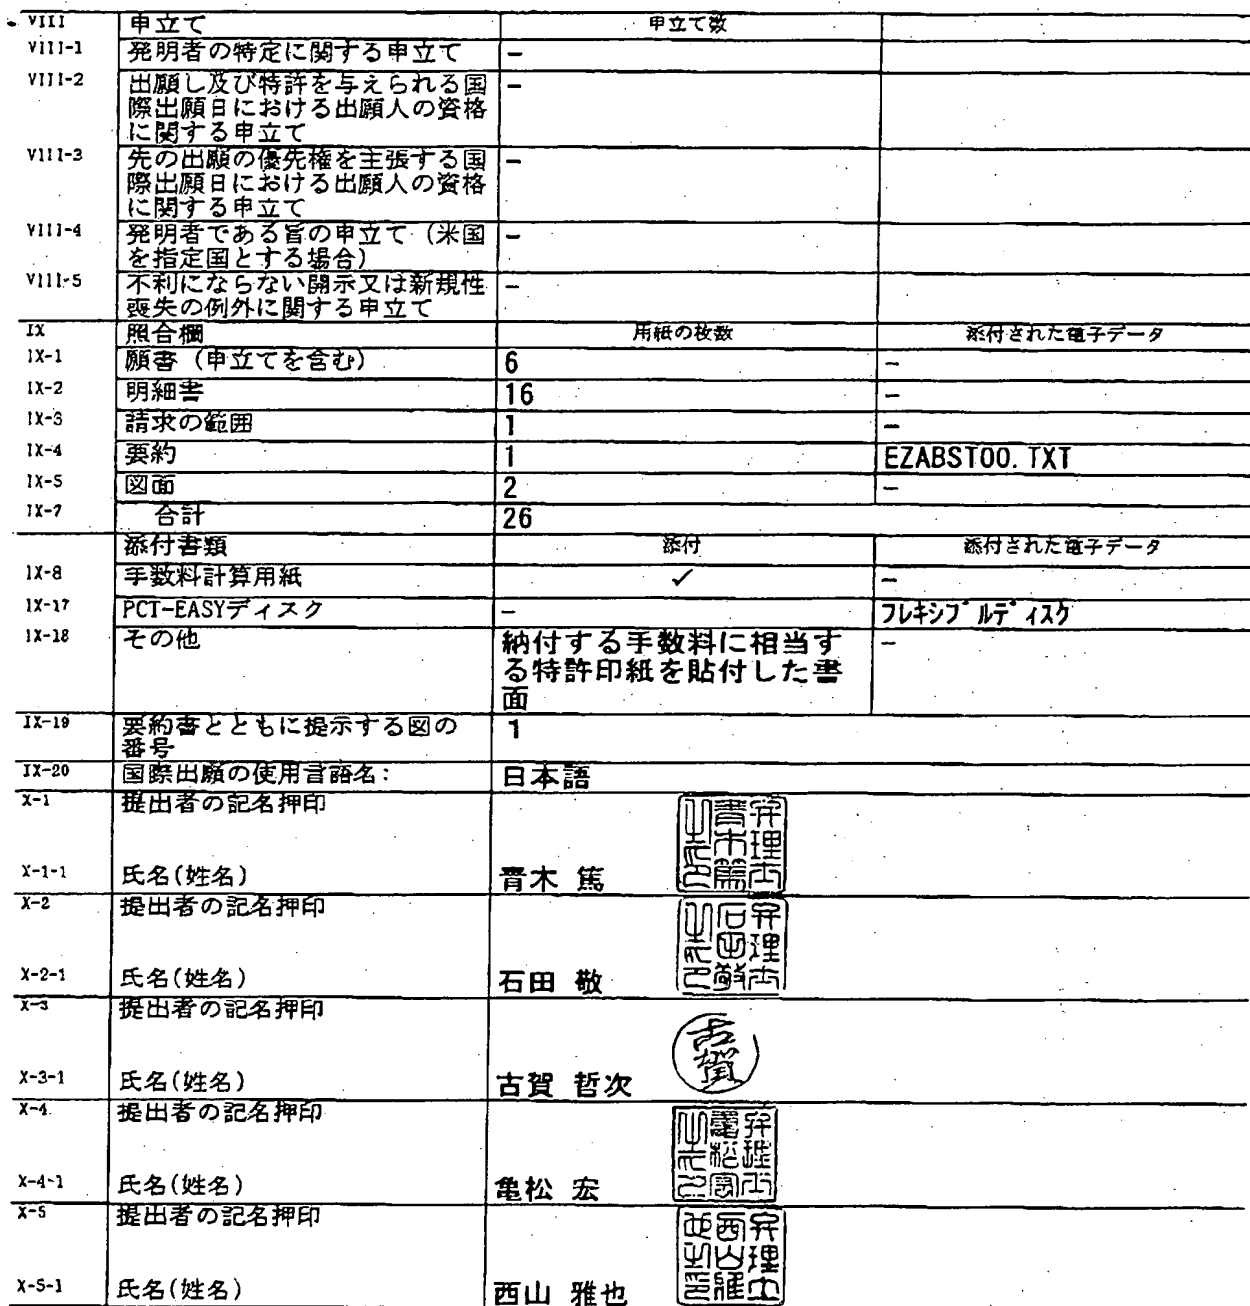 VIII 申立て 申立て数
VIII-1 発明者の特定に関する申立て -
VIII-2 出願し及び特許を与えられる国 -
際出願日における出願人の資格
に関する申立て
VIII-3 先の出願の優先権を主張する国 -
際出願日における出願人の資格
に関する申立て
VIII-4 発明者である旨の申立て (米国 -
を指定国とする場合)
VIII-5 不利にならない開示又は新規性 -
喪失の例外に関する申立て
IX 照合欄 用紙の枚数 添付された電子データ
IX-1 願書 (申立てを含む) 6 -
IX-2 明細書 16 -
IX-3 請求の範囲 1 -
IX-4 要約 1 EZABST00.TXT
IX-5 図面 2 -
IX-7 合計 26
添付書類 添付 添付された電子データ
IX-8 手数料計算用紙 ✓ -
IX-17 PCT-EASYディスク - フレキシブルディスク
IX-18 その他 納付する手数料に相当す -
る特許印紙を貼付した書
面
IX-19 要約書とともに提示する図の 1
番号
IX-20 国際出願の使用言語名: 日本語
X-1 提出者の記名押印
弁理士青木篤之印
X-1-1 氏名(姓名) 青木 篤
X-2 提出者の記名押印
弁理士石田敬之印
X-2-1 氏名(姓名) 石田 敬
X-3 提出者の記名押印
古賀
X-3-1 氏名(姓名) 古賀 哲次
X-4 提出者の記名押印
X-4-1 氏名(姓名) 亀松 宏
X-5 提出者の記名押印
弁理士西山雅也之印
X-5-1 氏名(姓名) 西山 雅也